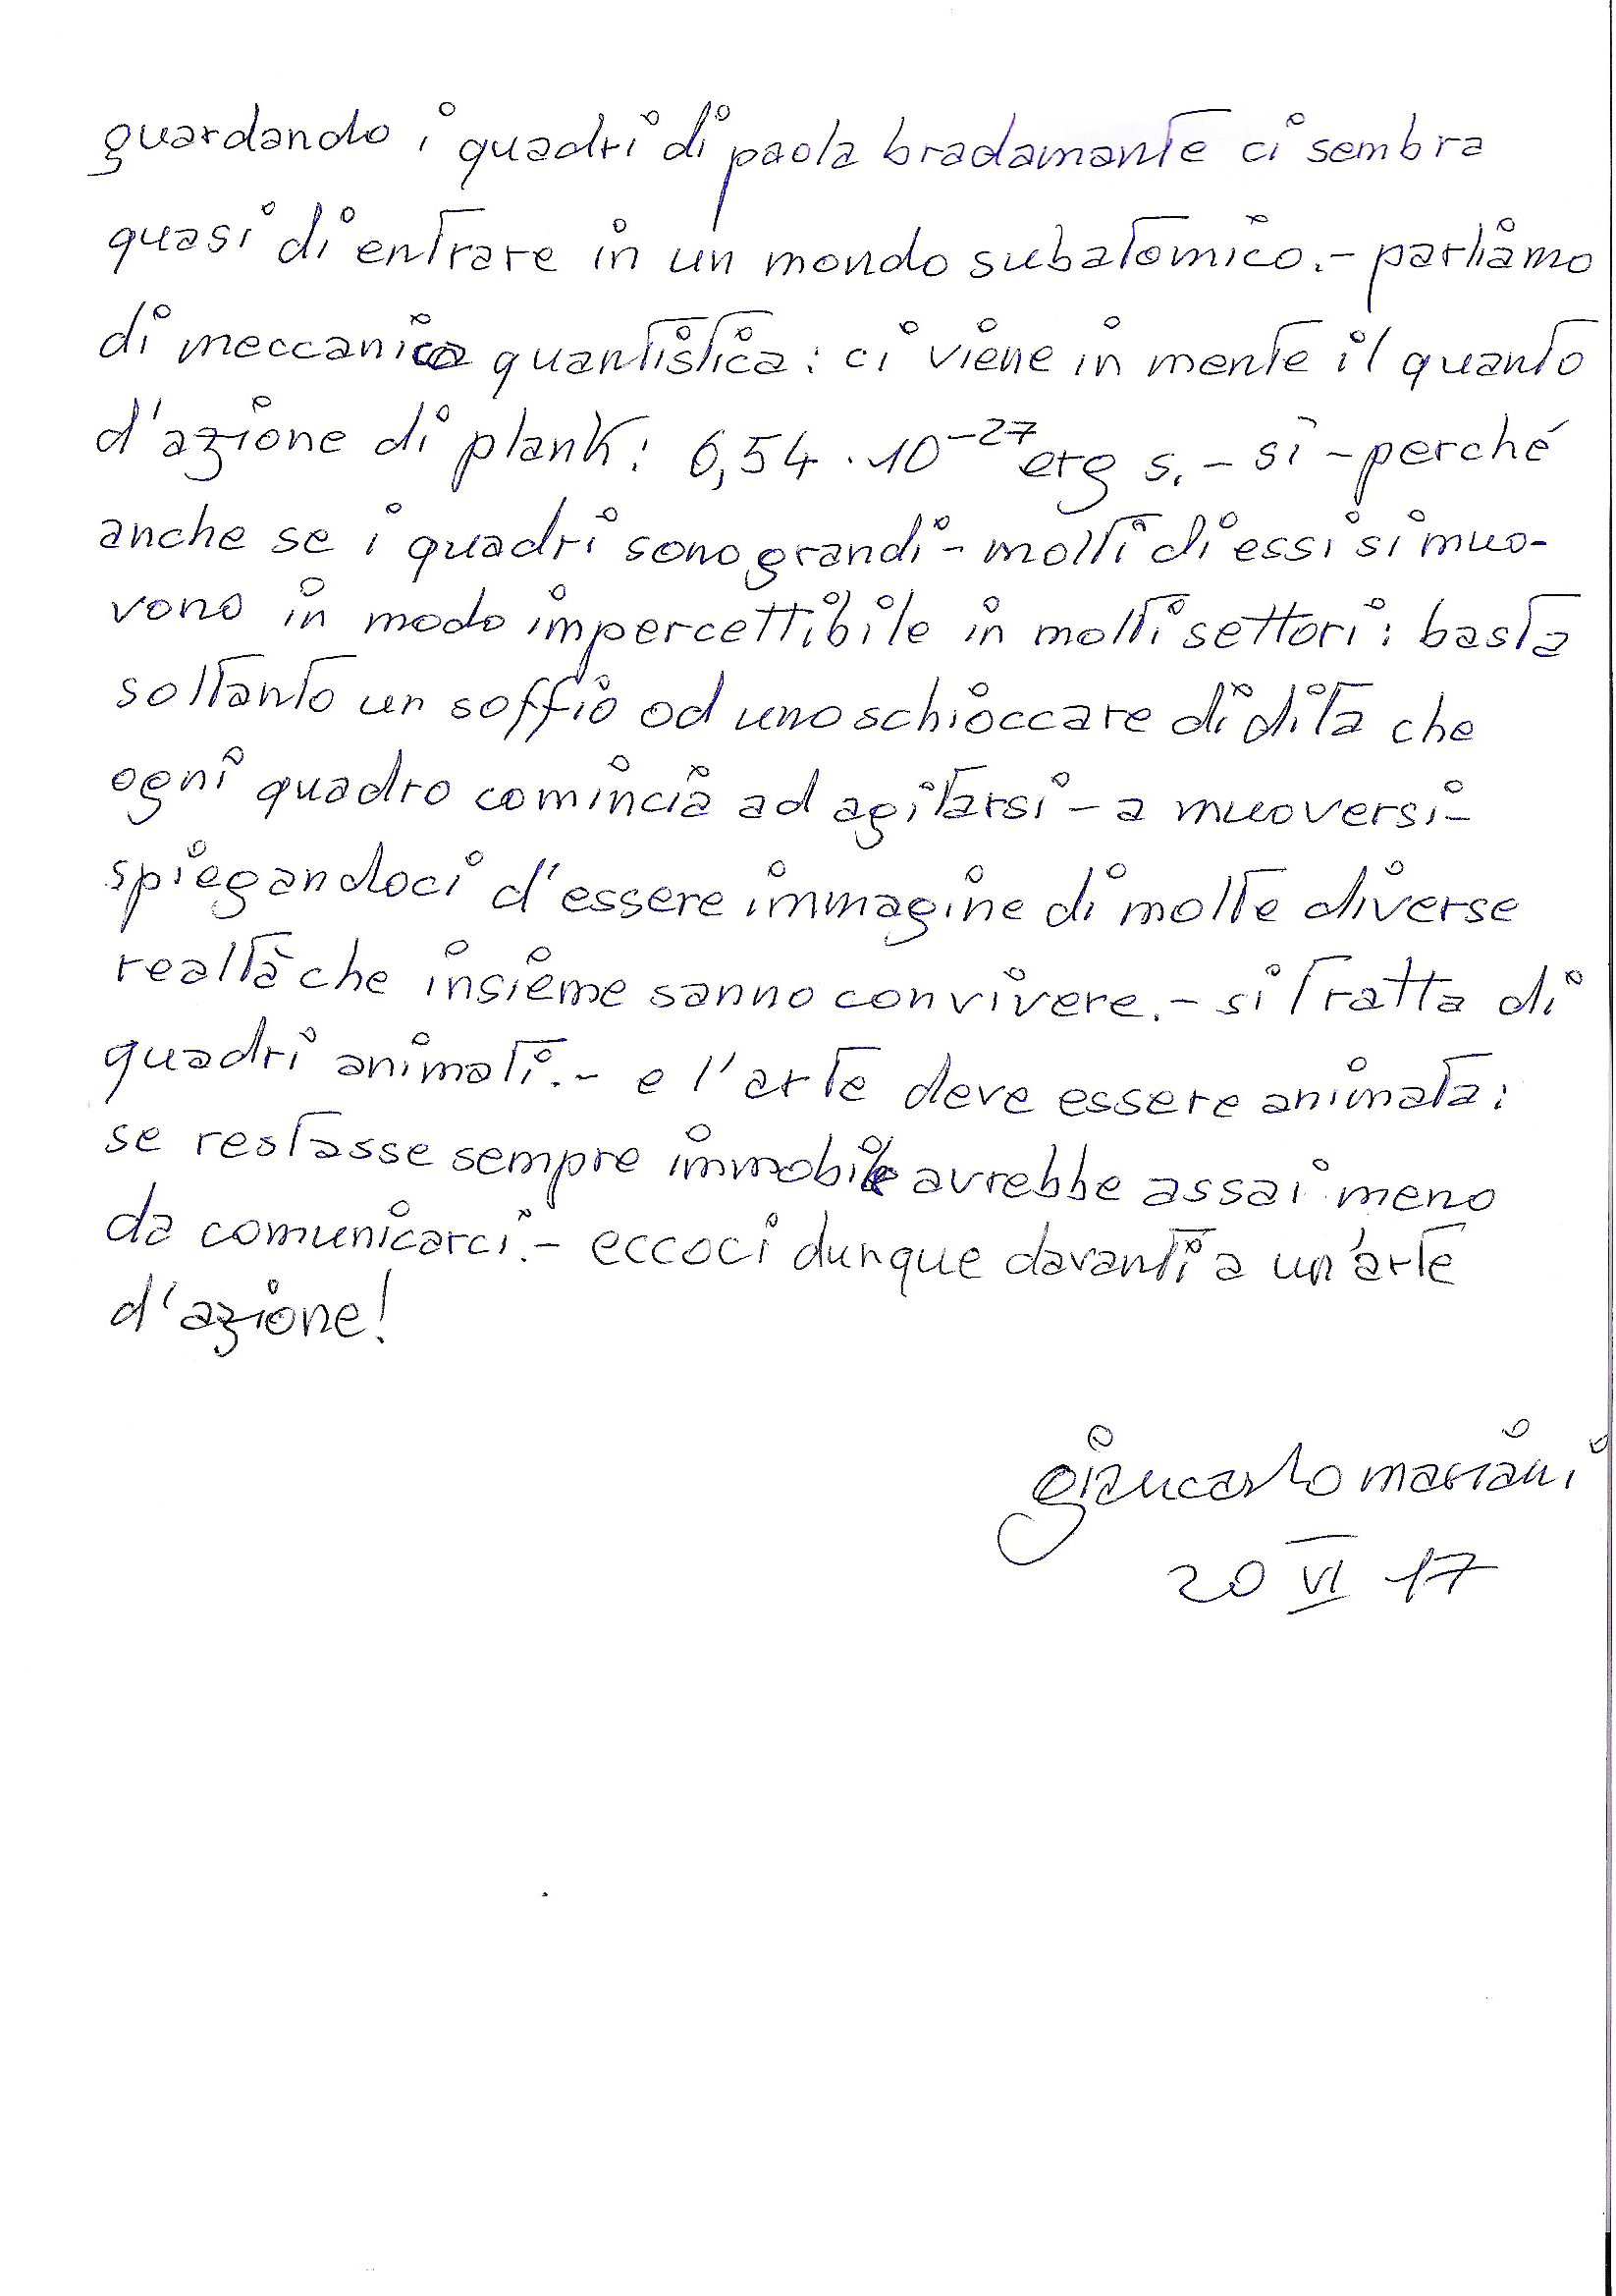 guardando i quadri di paola bradamante ci sembra
quasi di entrare in un mondo subatomico.- parliamo
di meccanica quantistica: ci viene in mente il quanto
d'azione di plank: 6,54 · 10⁻²⁷ erg s. - sì - perché
anche se i quadri sono grandi - molti di essi si muo-
vono in modo impercettibile in molti settori: basta
soltanto un soffio od uno schioccare di dita che
ogni quadro comincia ad agitarsi - a muoversi -
spiegandoci d'essere immagine di molte diverse
realtà che insieme sanno convivere. - si tratta di
quadri animati. - e l'arte deve essere animata:
se restasse sempre immobile avrebbe assai meno
da comunicarci. - eccoci dunque davanti a un'arte
d'azione!
giancarlo mariani
20 VI 17